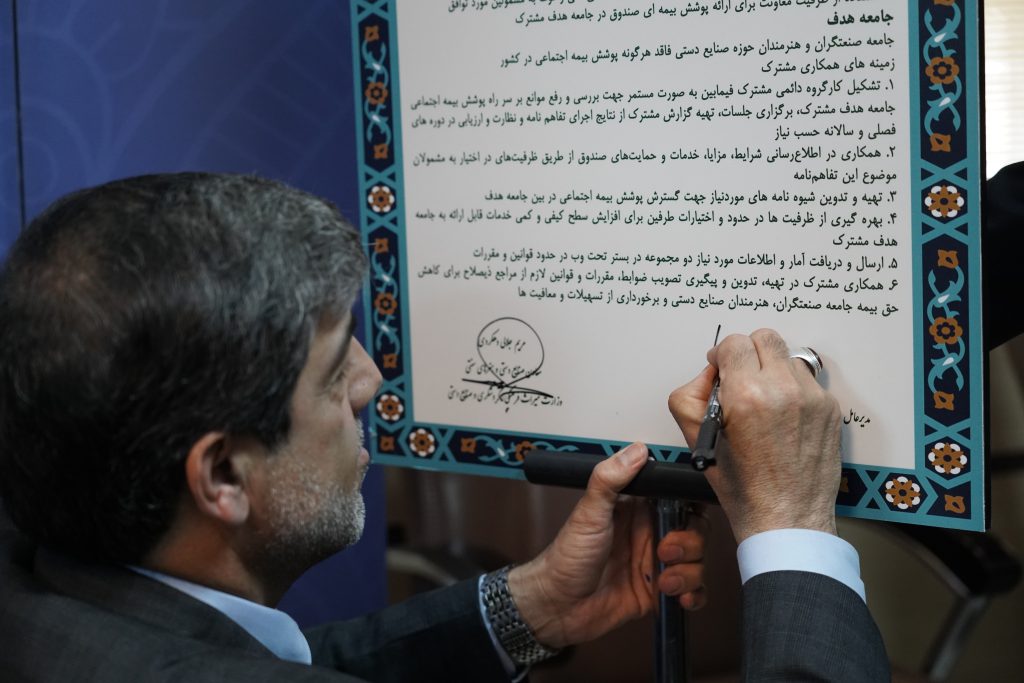 از ظرفیت معاونت برای ارائه پوشش بیمه ای صندوق در جامعه هدف مشترک
جامعه هدف
جامعه صنعتگران و هنرمندان حوزه صنایع دستی فاقد هرگونه پوشش بیمه اجتماعی در کشور
زمینه های همکاری مشترک
۱. تشکیل کارگروه دائمی مشترک فیمابین به صورت مستمر جهت بررسی و رفع موانع بر سر راه پوشش بیمه اجتماعی
جامعه هدف مشترک، برگزاری جلسات، تهیه گزارش مشترک از نتایج اجرای تفاهم نامه و نظارت و ارزیابی در دوره های
فصلی و سالانه حسب نیاز
۲. همکاری در اطلاع‌رسانی شرایط، مزایا، خدمات و حمایت‌های صندوق از طریق ظرفیت‌های در اختیار به مشمولان
موضوع این تفاهم‌نامه
۳. تهیه و تدوین شیوه نامه های موردنیاز جهت گسترش پوشش بیمه اجتماعی در بین جامعه هدف
۴. بهره گیری از ظرفیت ها در حدود و اختیارات طرفین برای افزایش سطح کیفی و کمی خدمات قابل ارائه به جامعه
هدف مشترک
۵. ارسال و دریافت آمار و اطلاعات مورد نیاز دو مجموعه در بستر تحت وب در حدود قوانین و مقررات
۶. همکاری مشترک در تهیه، تدوین و پیگیری تصویب ضوابط، مقررات و قوانین لازم از مراجع ذیصلاح برای کاهش
حق بیمه جامعه صنعتگران، هنرمندان صنایع دستی و برخورداری از تسهیلات و معافیت ها
مریم جلالی دهکردی
معاون صنایع دستی و هنرهای سنتی
وزارت میراث فرهنگی، گردشگری و صنایع دستی
مدیرعامل